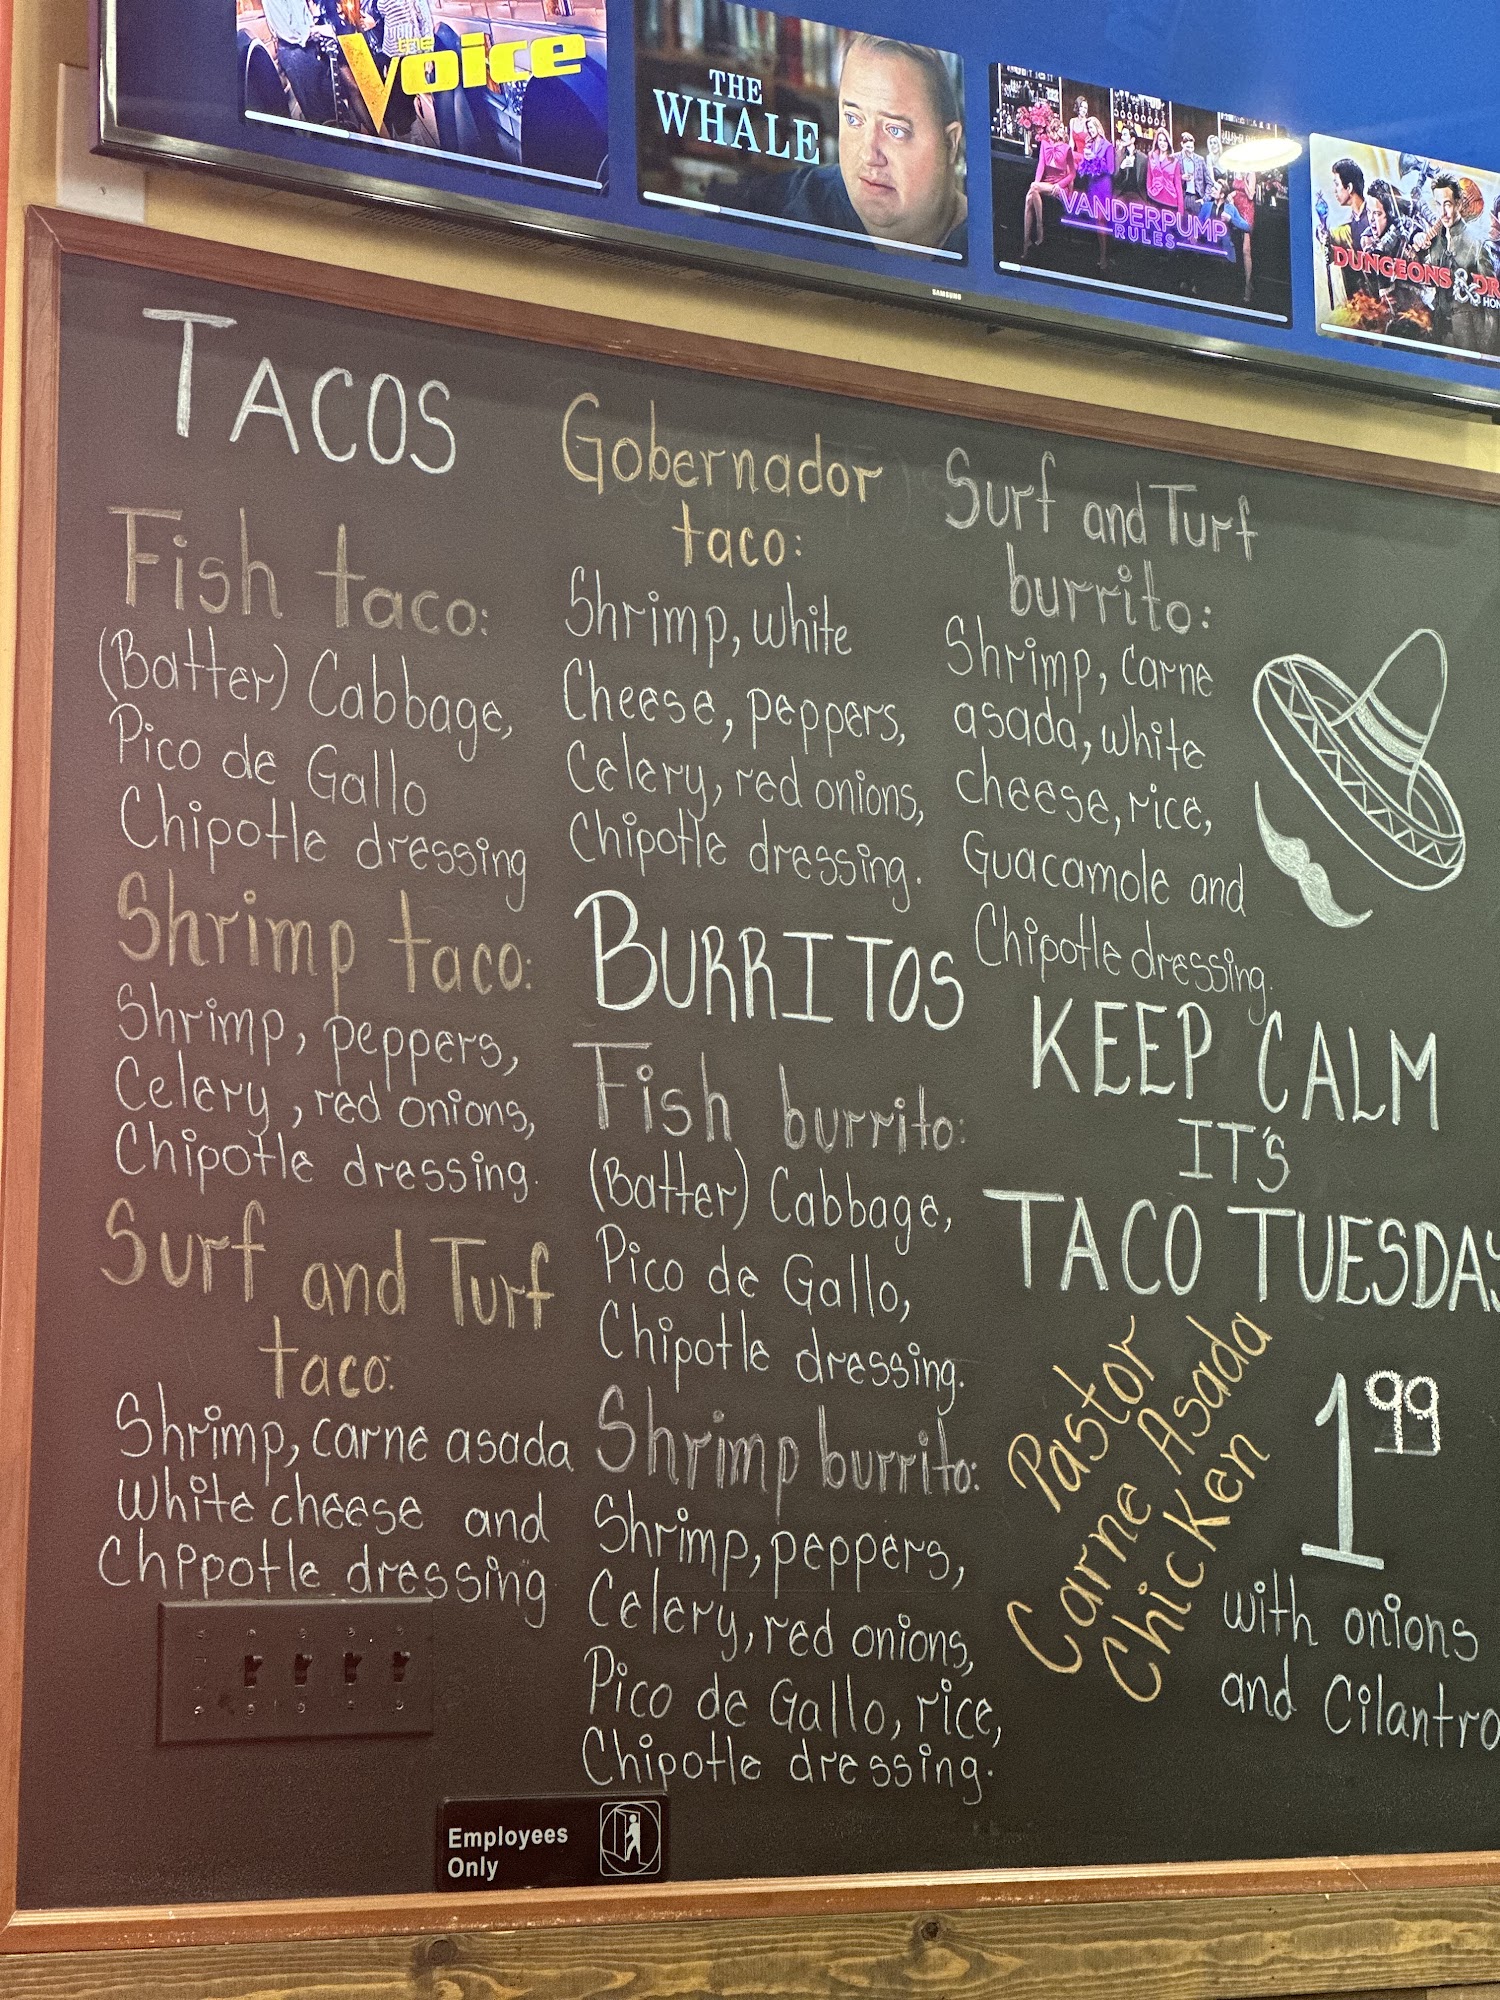 the
Voice
THE
WHALE
VANDERPUMP
RULES
DUNGEONS & DR
HON
SAMSUNG
TACOS
Fish taco:
(Batter) Cabbage,
Pico de Gallo
Chipotle dressing
Shrimp taco:
Shrimp, peppers,
Celery, red onions,
Chipotle dressing.
Surf and Turf
taco:
Shrimp, carne asada
white cheese and
Chppotle dressing
Gobernador
taco:
Shrimp, white
Cheese, peppers,
Celery, red onions,
Chipotle dressing.
BURRITOS
Fish burrito:
(Batter) Cabbage,
Pico de Gallo,
Chipotle dressing.
Shrimp burrito:
Shrimp, peppers,
Celery, red onions,
Pico de Gallo, rice,
Chipotle dressing.
Surf and Turf
burrito:
Shrimp, carne
asada, white
cheese, rice,
Guacamole and
Chipotle dressing.
KEEP CALM
IT'S
TACO TUESDAY
Pastor
Carne Asada
Chicken
1 99
with onions
and Cilantro
Employees
Only